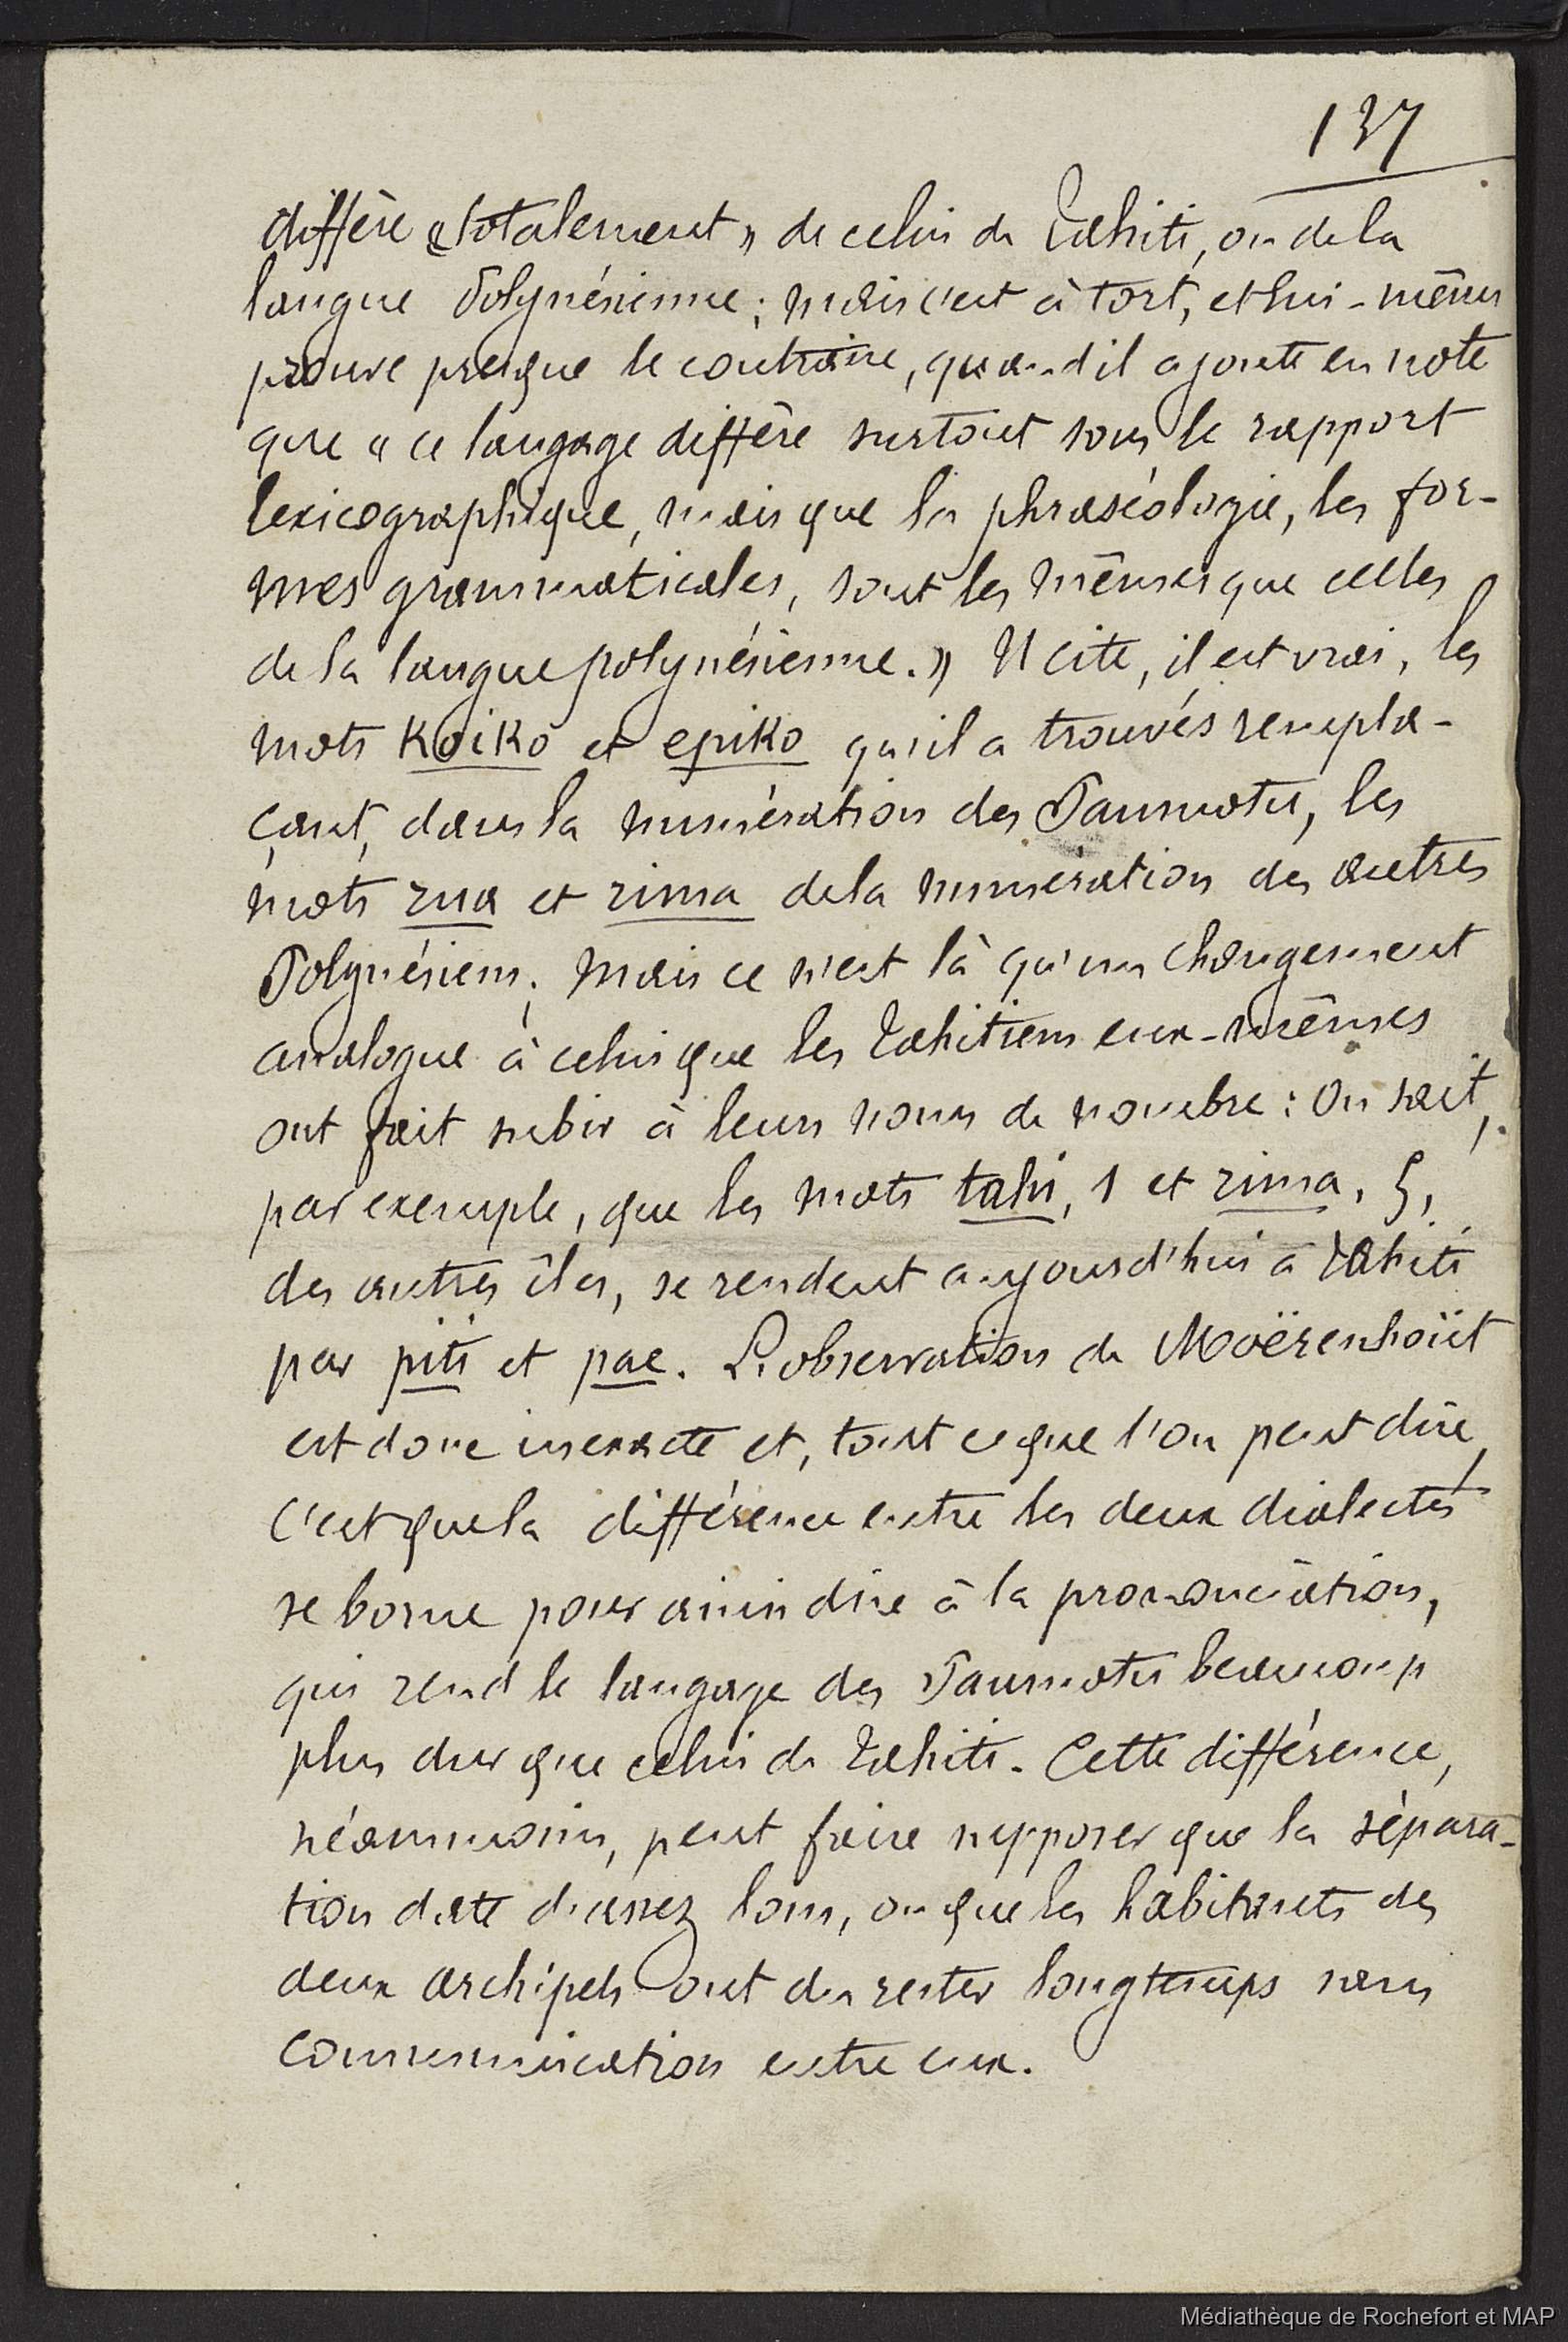 137
diffère « totalement » de celui de Tahiti, ou de la
langue Polynésienne ; mais c'est à tort, et lui-même
prouve presque le contraire, quand il ajoute en note
que « ce langage diffère surtout sous le rapport
lexicographique, mais que la phraséologie, les for-
mes grammaticales, sont les mêmes que celles
de la langue polynésienne. » Il cite, il est vrai, les
mots Koiko et epiko qu'il a trouvés rempla-
çant, dans la numération des Paumotu, les
mots rua et rima de la numération des autres
Polynésiens ; mais ce n'est là qu'un changement
analogue à celui que les Tahitiens eux-mêmes
ont fait subir à leurs noms de nombre : On sait,
par exemple, que les mots tahi, 1 et rima, 5,
des autres îles, se rendent aujourd'hui à Tahiti
par piti et pae. L'observation de Moërenhoüt
est donc inexacte et, tout ce que l'on peut dire,
c'est que la différence entre les deux dialectes
se borne pour ainsi dire à la prononciation,
qui rend le langage des Paumotu beaucoup
plus dur que celui de Tahiti. Cette différence,
néanmoins, peut faire supposer que la sépara-
tion date d'assez loin, ou que les habitants des
deux archipels ont du rester longtemps sans
communication entre eux.
Médiathèque de Rochefort et MAP